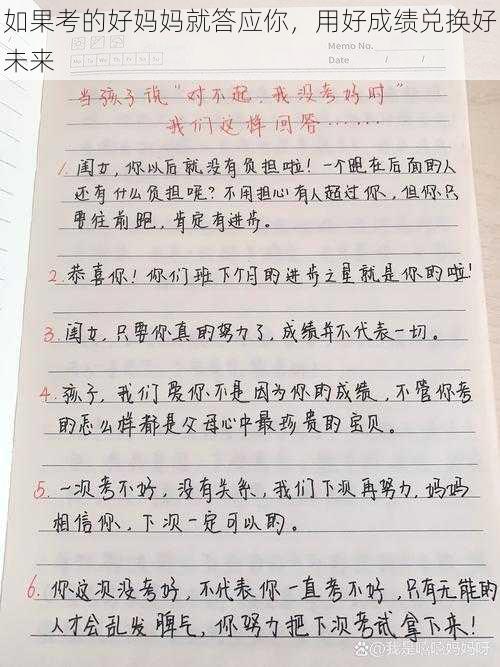 如果考的好妈妈就答应你，用好成绩兑换好
未来
Memo No.
Mo Tu We Th Fr Sa Su
Date / /
当孩子说"对不起，我没考好时"
我们这样回答……
1. 闺女，你以后就没有负担啦！一个跑在后面的人
还有什么负担呢？不用担心有人超过你，但你只
要往前跑，肯定有进步。
2. 恭喜你！你们班下个月的进步之星就是你的啦！
3. 闺女，只要你真的努力了，成绩并不代表一切。
4. 孩子，我们爱你不是因为你的成绩，不管你考
的怎么样都是父母心中最珍贵的宝贝。
5. 一次考不好，没有关系，我们下次再努力，妈妈
相信你，下次一定可以的。
6. 你这次没考好，不代表你一直考不好，只有无能的
人才会乱发脾气，你努力把下次考试拿下来！
@我是嘻嘻妈妈呀